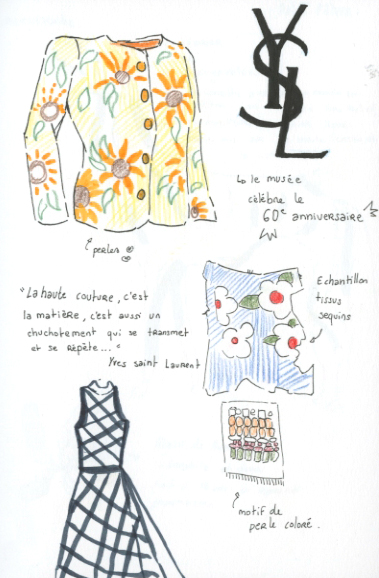 YSL
↳ le musée
célèbre le
60e anniversaire
perles
"La haute couture, c'est
la matière, c'est aussi un
chuchotement qui se transmet
et se répète..."
Yves saint Laurent
Echantillon
tissus
sequins
motif de
perle coloré.